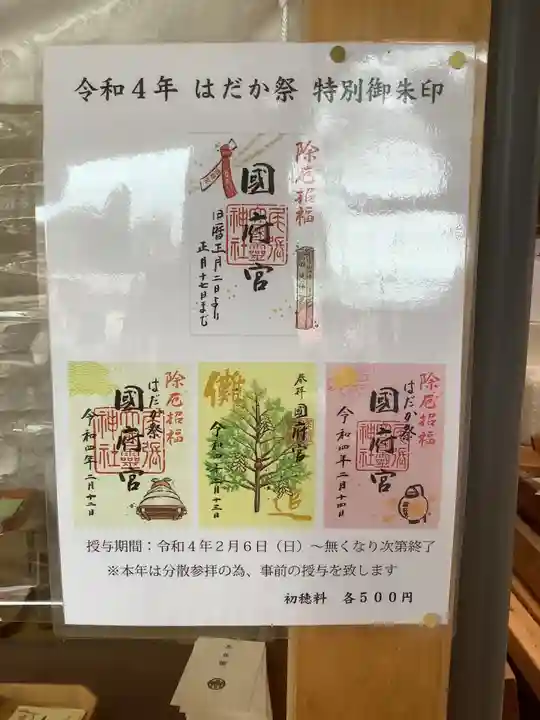 令和４年 はだか祭 特別御朱印
除厄招福
國府宮
旧暦正月二日より
正月十七日まで
除厄招福
はだか祭
國府宮
令和四年二月十二日
儺
奉拝
國府宮
令和四年二月十三日
追
除厄招福
はだか祭
國府宮
令和四年二月十四日
授与期間：令和４年２月６日（日）～無くなり次第終了
※本年は分散参拝の為、事前の授与を致します
初穂料 各５００円